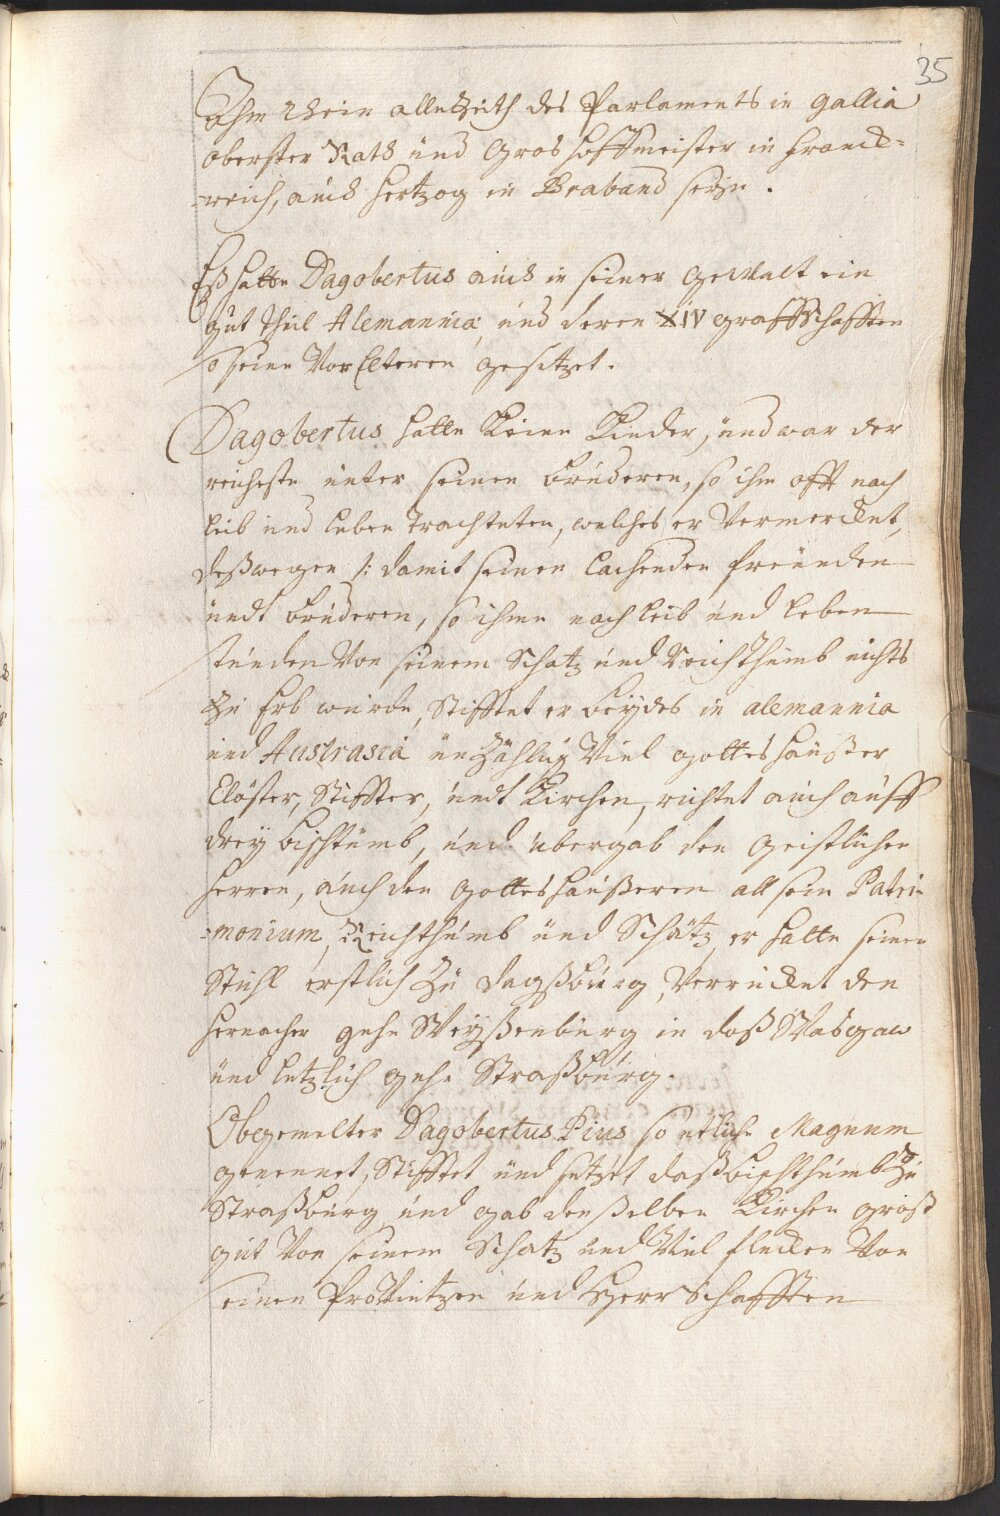 35
Ahm Rhein alletzeith des Parlaments in Gallia
oberster Rath und Gros Hoffmeister in Franck=
=reich, auch Hertzog in Braband seyn.
Eß hatte Dagobertus auch in seiner Gewalt ein
gut theil Alemannia, und deren XIV Graffschafften
so seine Vor Elteren gesetzet.
Dagobertus hatte keine Kinder, und war der
reicheste unter seinen Brüderen, so ihm offt nach
leib und leben trachteten, welches er vermercket,
deßwegen /: damit seinen lachenden freunden
undt brüderen, so ihme nach leib und leben
stunden von seinem Schatz und Reichthumb nichts
zu Erb wurde, stifftet er beydes in Alemannia
und Austrasia unzählig viel gotteshaußer
Clöster, Stiffter, undt Kirchen, richtet auch auff
drey bischtumb, und übergab den geistlichen
herren, auch den gotteshaußeren all sein Patri-
=monium, Reichthumb und Schätz, er hatte seinen
Stuhl erstlich zu Dagßburg, verrucket den
hernacher gehn Weyßenburg in daß Wasgaw
und letzlich gehn Straßburg.
Obgemelter Dagobertus Pius so etliche Magnum
genennet, stifftet und setzet daß bischthumb zu
Straßburg und gab denselben Kirchen groß
gut von seinem Schatz und viel flecken von
seinen Provintzen und Herrschafften